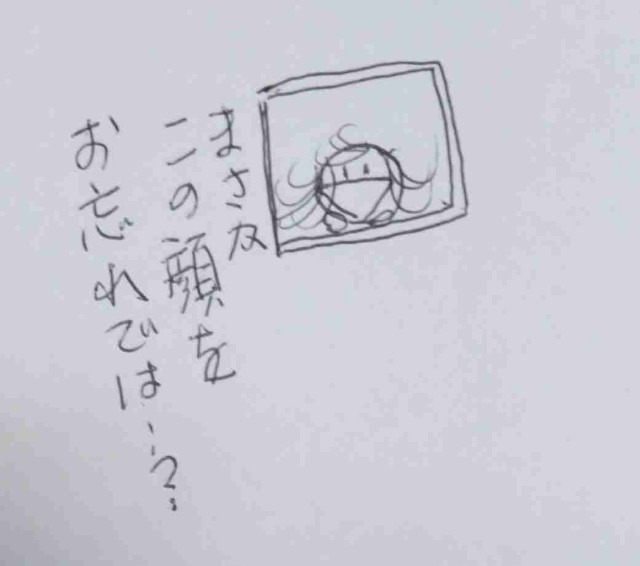 まさか
この顔を
お忘れでは…?